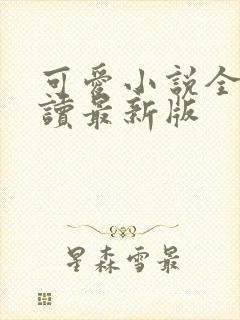 可愛小說全
讀最新版
星森雪最